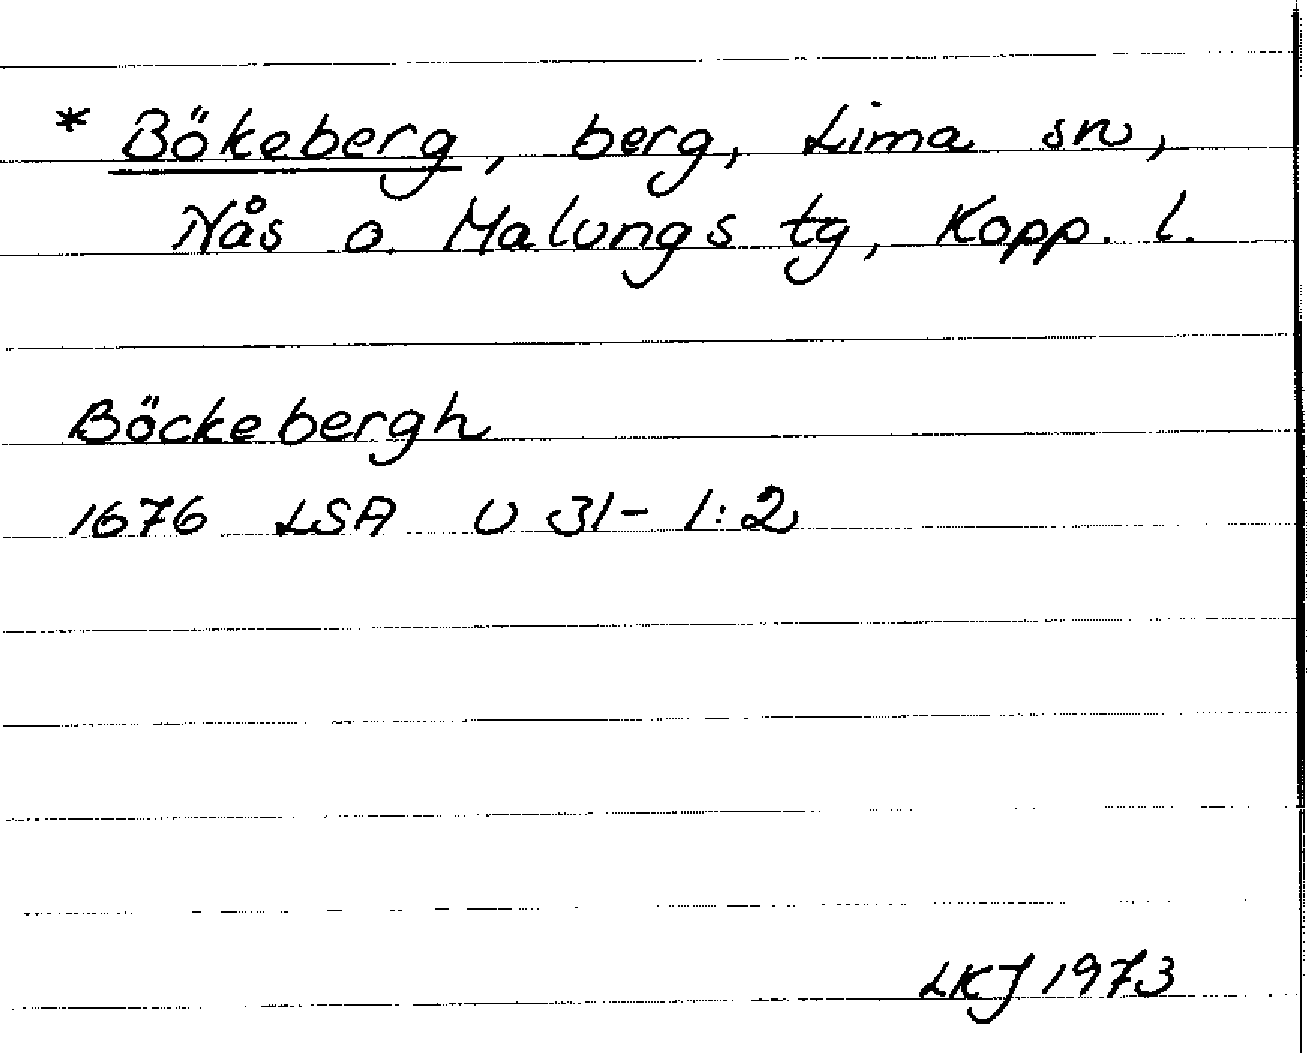 * Bökeberg, berg, Lima sn,
Nås o. Malungs tg, Kopp. l.
Böckebergh
1676 LSA U 31- 1:2
LKJ 1973